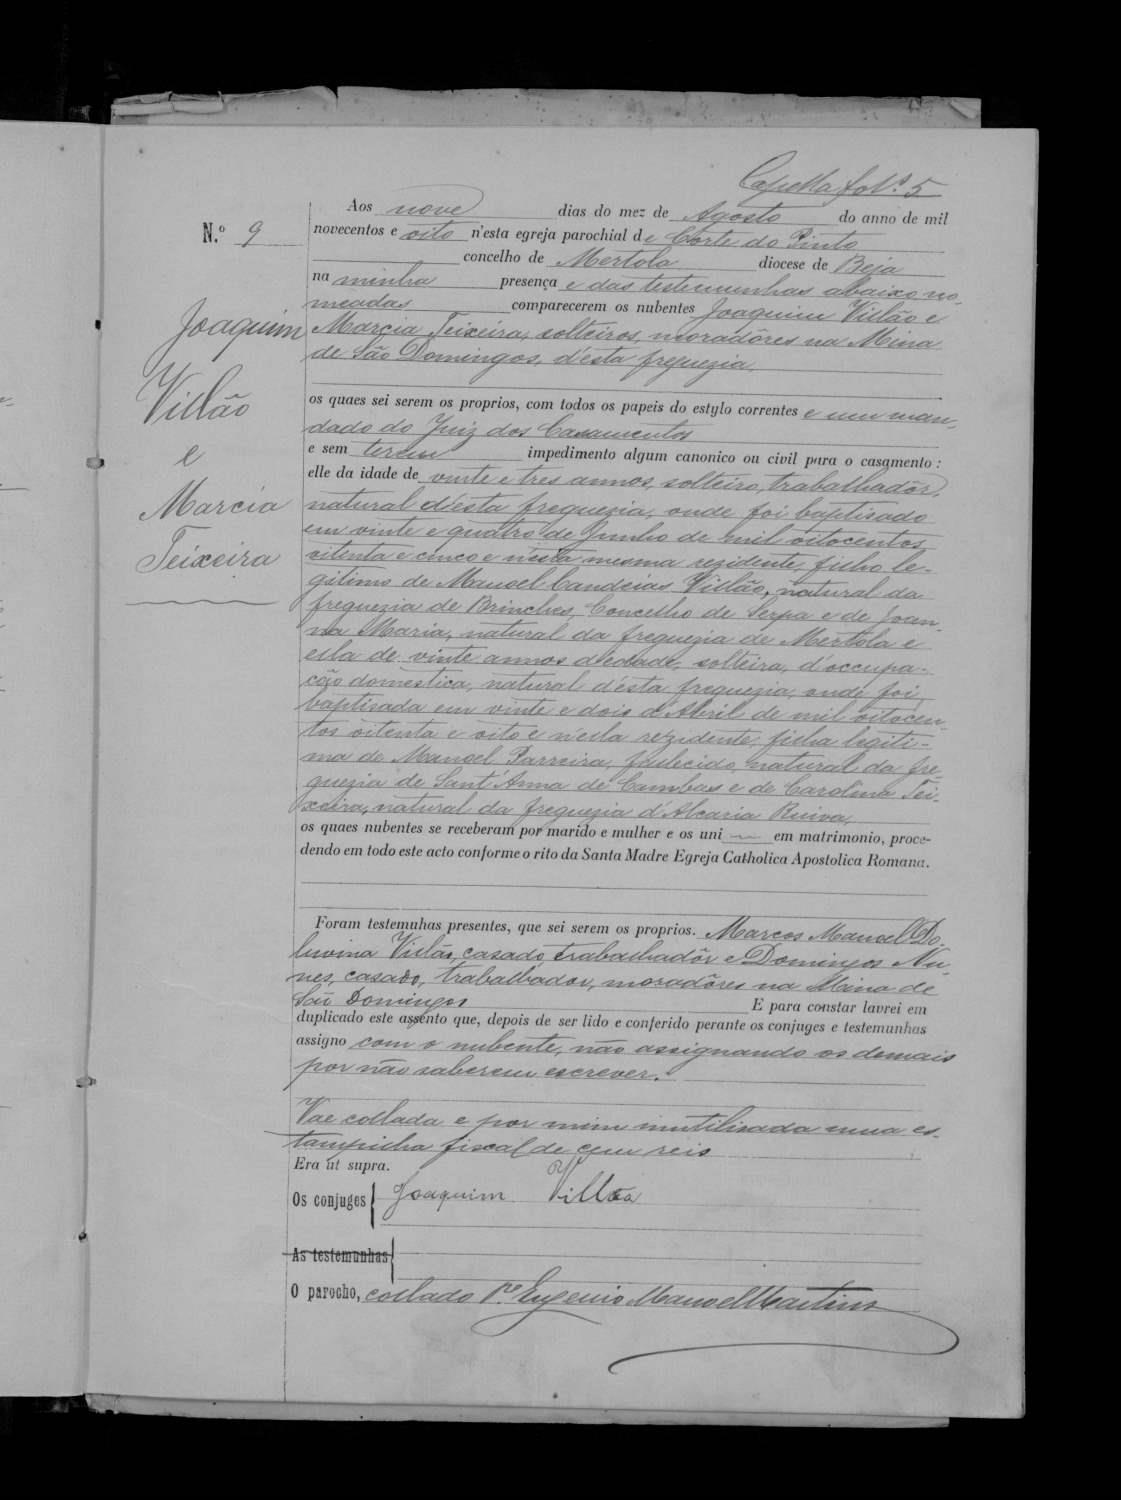 Capella fol. 5
Aos nove dias do mez de Agosto do anno de mil
N.º 9
novecentos e oito n'esta egreja parochial de Corte do Pinto
concelho de Mertola diocese de Beja
na minha presença e das testemunhas abaixo no-
meadas comparecerem os nubentes Joaquim Villão e
Marcia Teixeira, solteiros, moradôres na Mina
de São Domingos, d'ésta freguezia,
Joaquim
Villão
e
Marcia
Teixeira
os quaes sei serem os proprios, com todos os papeis do estylo correntes e um man-
dado do Juiz dos Casamentos
e sem terem impedimento algum canonico ou civil para o casamento:
elle da idade de vinte e tres annos, solteiro, trabalhadôr,
natural d'ésta freguezia, onde foi baptisado
em vinte e quatro de Junho de mil oitocentos
oitenta e cinco e n'ésta mesma rezidente, filho le-
gitimo de Manoel Candeias Villão, natural da
freguezia de Brinches, Concelho de Serpa e de Joan-
na Maria, natural da freguezia de Mertola e
ella de vinte annos d'edade, solteira, d'occupa-
ção doméstica, natural d'ésta freguezia, onde foi
baptisada em vinte e dois d'Abril de mil oitocen-
tos oitenta e oito e n'ella rezidente, filha legiti-
ma de Manoel Parreira, fallecido, natural da fre-
guezia de Sant'Anna de Cambas e de Carolina Tei-
xeira, natural da freguezia d'Alcaria Ruiva,
os quaes nubentes se receberam por marido e mulher e os uni em matrimonio, proce-
dendo em todo este acto conforme o rito da Santa Madre Egreja Catholica Apostolica Romana.
Foram testemuhas presentes, que sei serem os proprios. Marcos Manoel Do-
luvina Villão, casado, trabalhadôr e Domingos Nu-
nes, casado, trabalhador, moradôres na Mina de
São Domingos E para constar lavrei em
duplicado este assento que, depois de ser lido e conferido perante os conjuges e testemunhas
assigno com o nubente, não assignando os demais
por não saberem escrever.
Vae collada e por mim inutilisada uma es-
tampilha fiscal de cem reis
Era ut supra.
Os conjuges Joaquim Villão
As testemunhas
O parocho, collado P.e Eugenio Manoel Martins